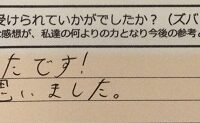 受けられていかがでしたか？（ズバ
な感想が、私達の何よりの力となり今後の参考と
たです！
思いました。